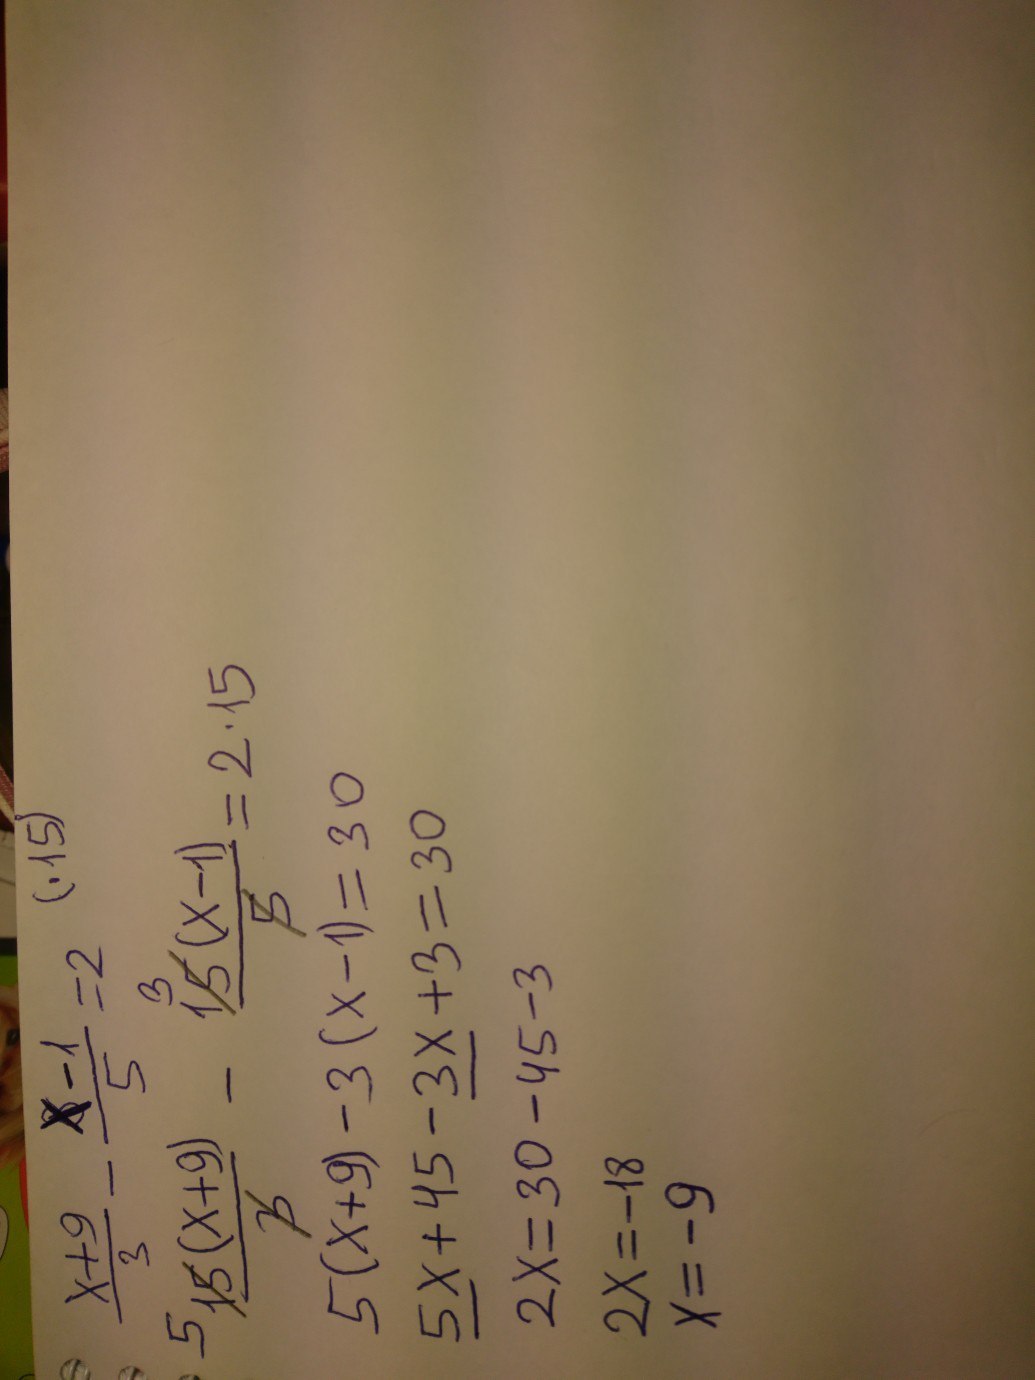 x+9/3 - x-1/5 = 2 (·15)
5 15(x+9)/3 - 3 15(x-1)/5 = 2·15
5(x+9)-3(x-1)=30
5x+45-3x+3=30
2x=30-45-3
2x=-18
x=-9